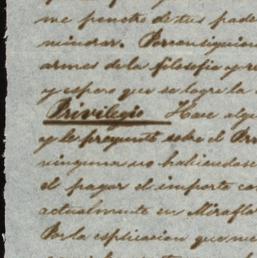 me pencho de tus pade
mindrar. Por consiguien
armes de la filosofia y re
y espero que se logre la
Privilegio Hace algu
y le pregunté sobre el Pri
ninguna no habiendose
el pagar el importe con
actualmente en Miraflo
Por la esplicacion que me